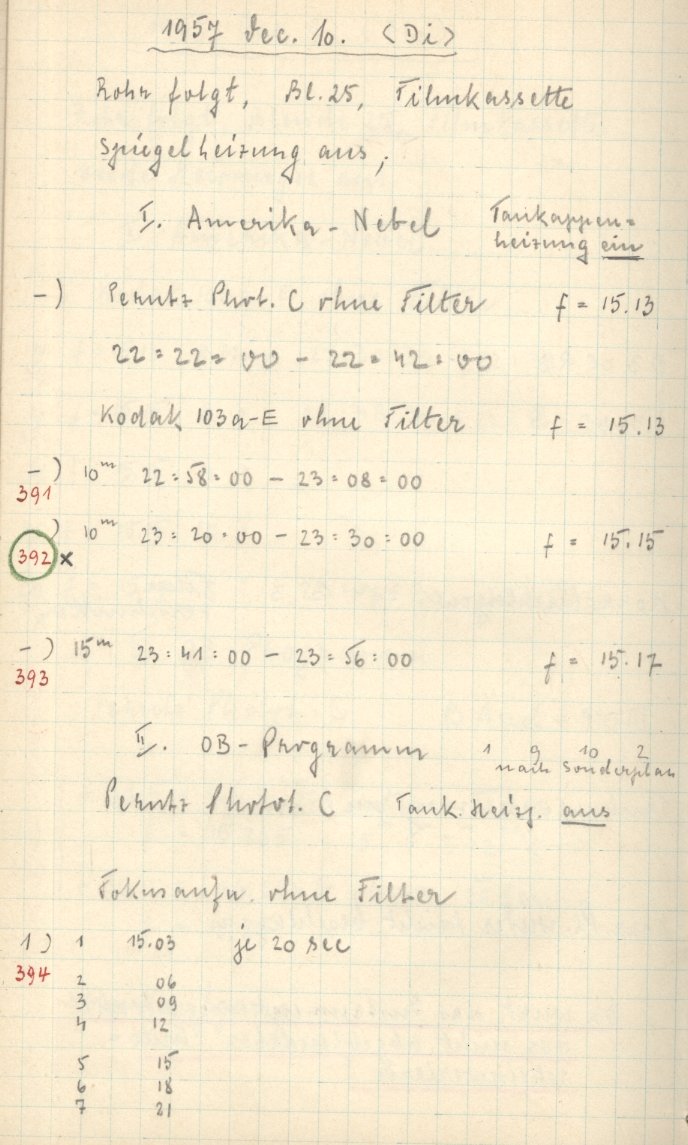 1957 Dec. 10. (Di)
Rohr folgt, Bl. 25, Filmkassette
Spiegelheizung aus;
I. Amerika - Nebel
Taukappen=
heizung ein
-) Perutz Phot. C ohne Filter f = 15.13
22:22:00 - 22:42:00
Kodak 103a-E ohne Filter f = 15.13
-) 10m 22:58:00 - 23:08:00
391
) 10m 23:20:00 - 23:30:00 f = 15.15
392 x
-) 15m 23:41:00 - 23:56:00 f = 15.17
393
II. OB-Programm 1 9 10 2
nach Sonderplan
Perutz Phot. C Tauk. Heizg. aus
Fokusaufn. ohne Filter
1) 1 15.03 je 20 sec
394
2 06
3 09
4 12
5 15
6 18
7 21